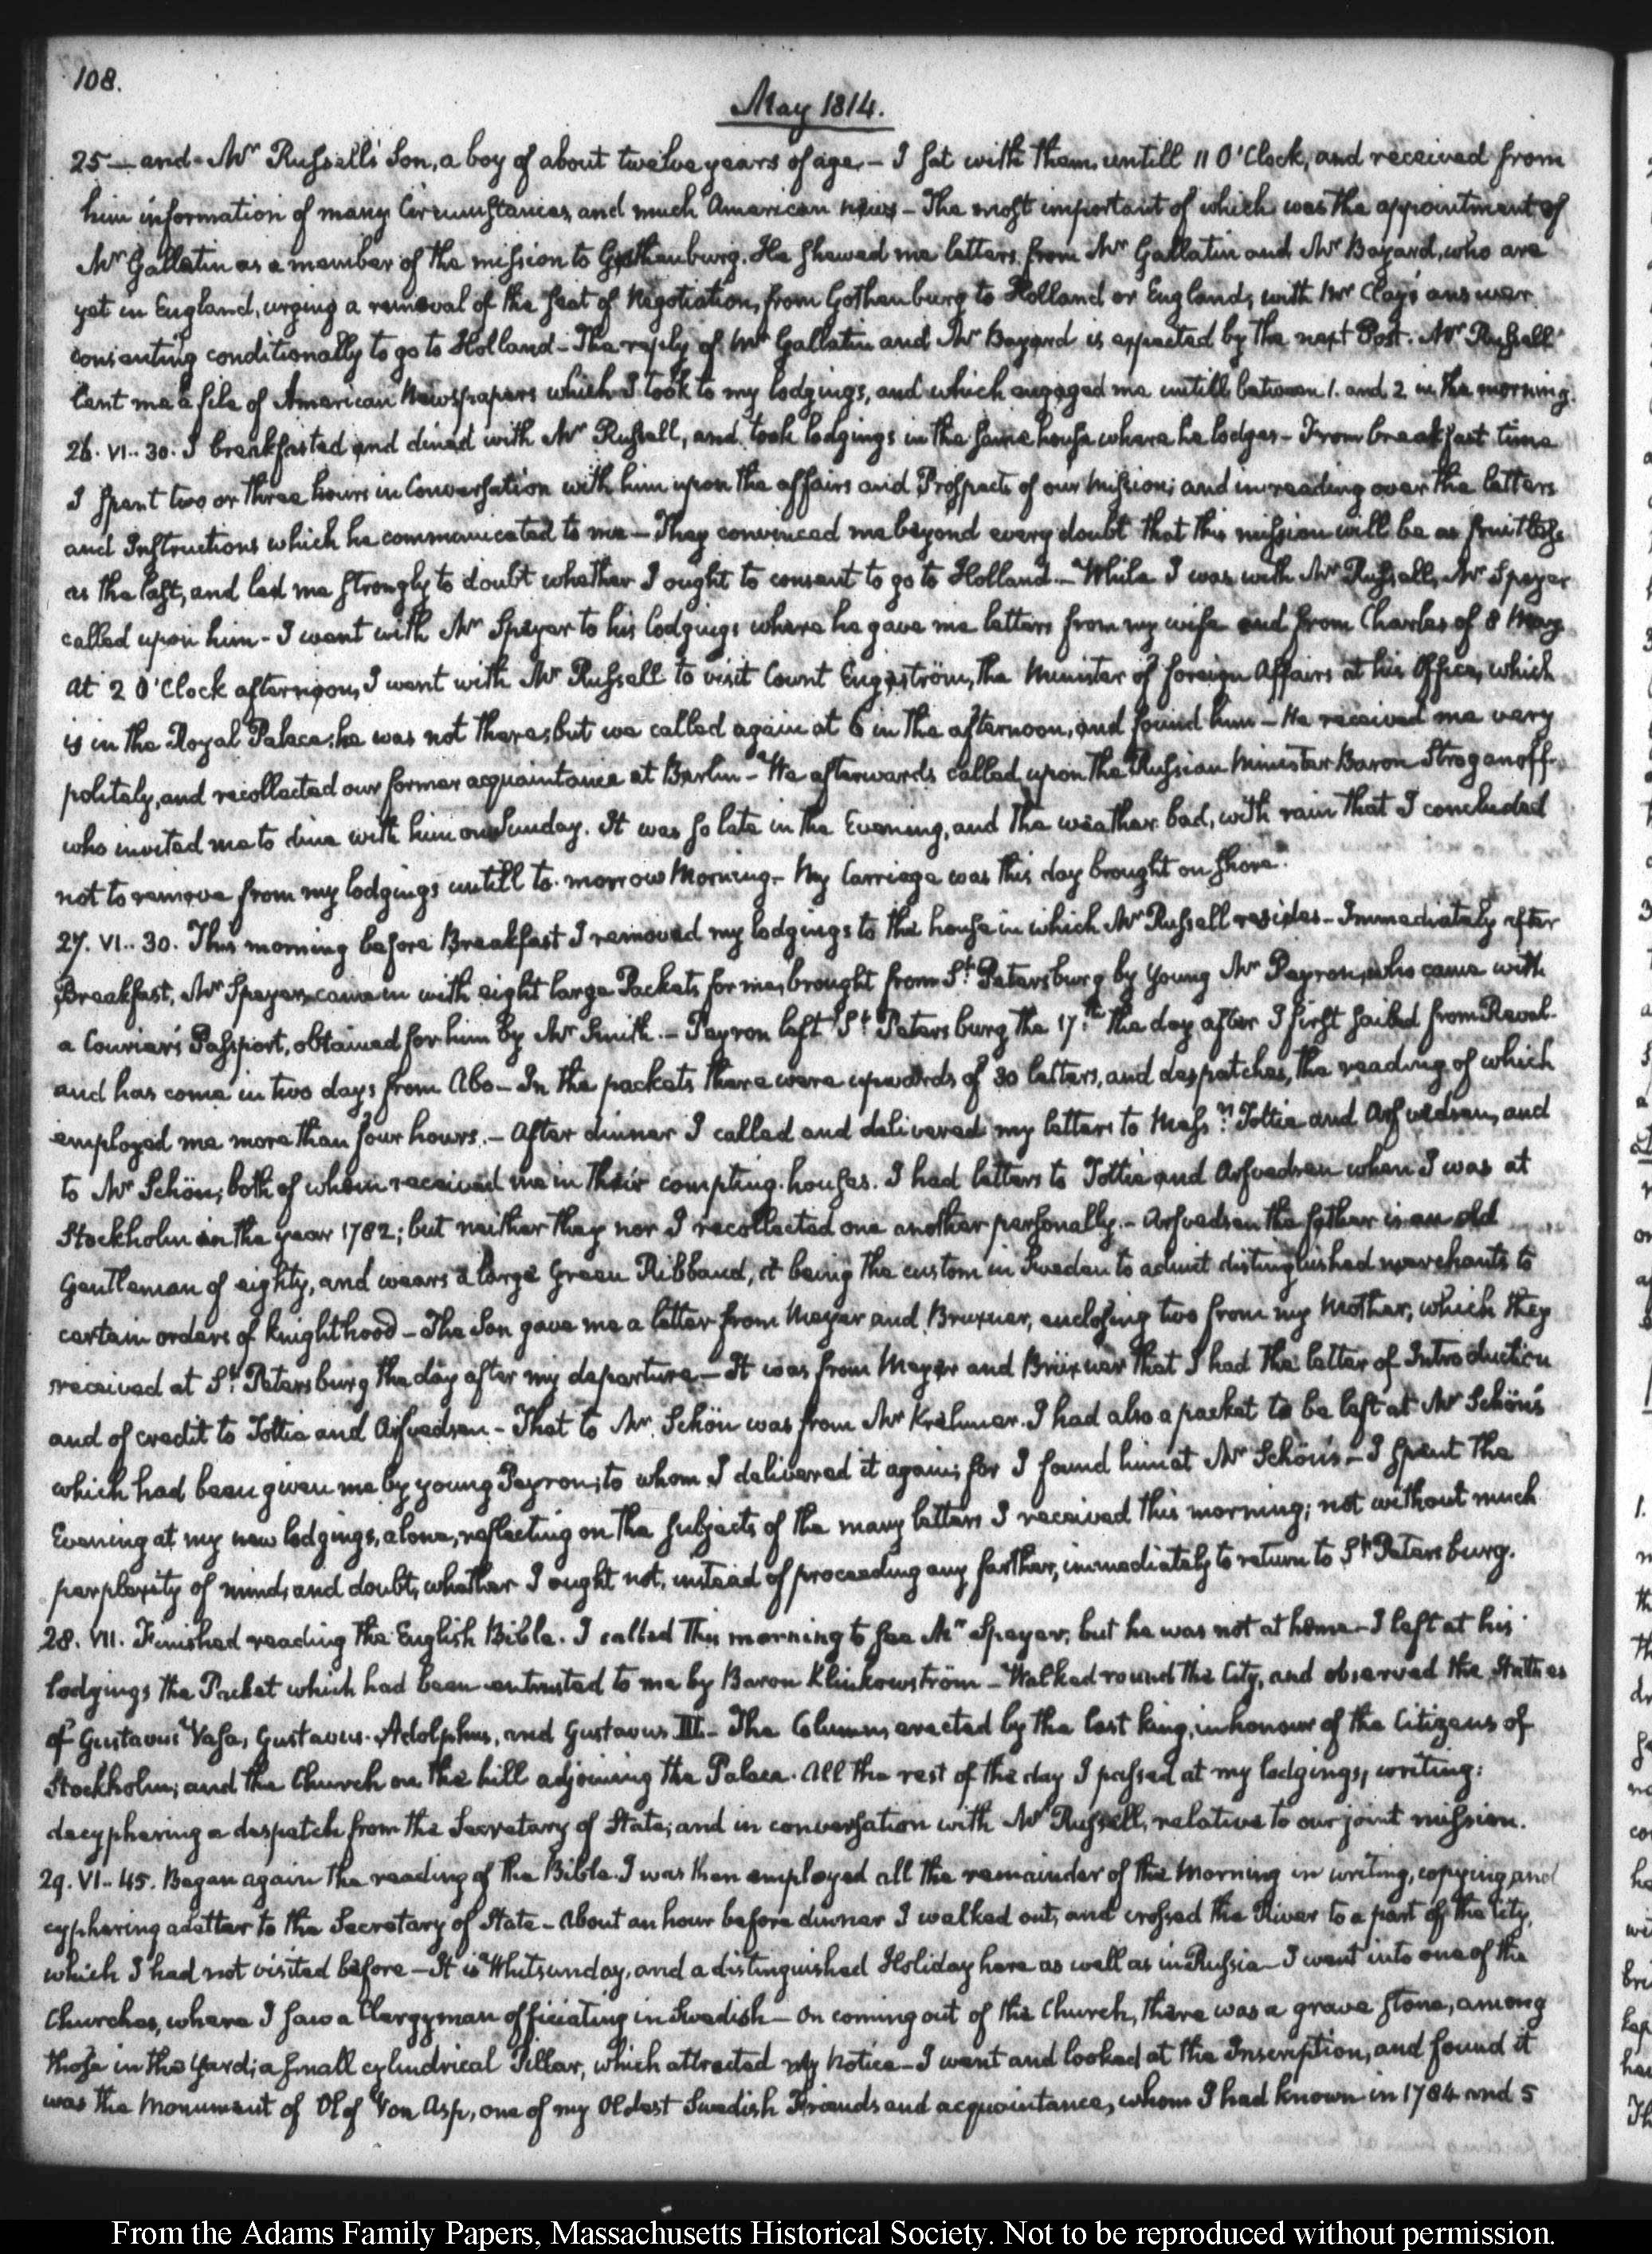 108.
May 1814.
25 — and Mr Russell's Son, a boy of about twelve years of age. — I sat with them untill 11 O'Clock, and received from
him information of many Circumstances, and much American news — The most important of which was the appointment of
Mr Gallatin as a member of the mission to Gothenburg. He shewed me letters from Mr Gallatin and Mr Bayard, who are
yet in England, urging a removal of the seat of Negotiation, from Gothenburg to Holland or England; with Mr Clay's answer
consenting conditionally to go to Holland — The reply of Mr Gallatin and Mr Bayard is expected by the next Post. Mr Russell
lent me a file of American Newspapers which I took to my lodgings, and which engaged me untill between 1. and 2 in the morning.
26. VI.. 30. I breakfasted and dined with Mr Russell, and took lodgings in the same house where he lodges — From breakfast time
I spent two or three hours in Conversation with him upon the affairs and Prospects of our Mission; and in reading over the letters
and Instructions which he communicated to me — They convinced me beyond every doubt that this mission will be as fruitless
as the last, and led me strongly to doubt whether I ought to consent to go to Holland. — While I was with Mr Russell, Mr Speyer
called upon him — I went with Mr Speyer to his lodgings where he gave me letters from my wife and from Charles of 8 May
At 2 O'Clock afternoon, I went with Mr Russell to visit Count Engeström, the Minister of foreign Affairs at his Office, which
is in the Royal Palace; he was not there; but we called again at 6 in the afternoon, and found him — He received me very
politely, and recollected our former acquaintance at Berlin — We afterwards called upon the Russian Minister Baron Stroganoff.
who invited me to dine with him on Sunday. It was so late in the Evening, and the weather bad, with rain that I concluded
not to remove from my lodgings untill to-morrow Morning — My Carriage was this day brought on shore.
27. VI.. 30. This morning before Breakfast I removed my lodgings to the house in which Mr Russell resides — Immediately after
Breakfast, Mr Speyer came in with eight large Packets for me, brought from St Petersburg by young Mr Peyron, who came with
a Courier's Passport, obtained for him by Mr Smith. — Peyron left St Petersburg the 17th the day after I first sailed from Reval.
and has come in two days from Abo — In the packets there were upwards of 30 letters, and despatches, the reading of which
employed me more than four hours. — After dinner I called and delivered my letters to Messrs Tottie and Arfvedsen, and
to Mr Schön; both of whom received me in their compting-houses. I had letters to Tottie and Arfvedsen when I was at
Stockholm in the year 1782; but neither they nor I recollected one another personally. — Arfvedsen the father is an old
Gentleman of eighty, and wears a large Green Ribband, it being the custom in Sweden to admit distinguished merchants to
certain orders of knighthood — The Son gave me a letter from Meyer and Bruxner, enclosing two from my Mother, which they
received at St Petersburg the day after my departure — It was from Meyer and Brüxner that I had the letter of Introduction
and of credit to Tottie and Arfvedsen — That to Mr Schön was from Mr Krehmer. I had also a packet to be left at Mr Schön's
which had been given me by young Peyron; to whom I delivered it again; for I found him at Mr Schön's — I spent the
Evening at my new lodgings, alone, reflecting on the subjects of the many letters I received this morning; not without much
perplexity of mind, and doubt, whether I ought not, instead of proceeding any farther, immediately to return to St Petersburg.
28. VII. Finished reading the English Bible. I called this morning to see Mr Speyer; but he was not at home — I left at his
lodgings the Packet which had been entrusted to me by Baron Klinkowström — Walked round the City, and observed the Statues
of Gustavus Vasa, Gustavus-Adolphus, and Gustavus III — The Column erected by the last king, in honour of the Citizens of
Stockholm; and the Church on the hill adjoining the Palace. All the rest of the day I passed at my lodgings, writing:
decyphering a despatch from the Secretary of State; and in conversation with Mr Russell, relative to our joint mission.
29. VI.. 45. Began again the reading of the Bible. I was then employed all the remainder of the Morning in writing, copying and
cyphering a letter to the Secretary of State — About an hour before dinner I walked out, and crossed the River to a part of the City,
which I had not visited before — It is Whitsunday, and a distinguished Holiday here as well as in Russia — I went into one of the
Churches, where I saw a Clergyman officiating in Swedish — On coming out of the Church, there was a grave stone, among
those in the Yard; a small cylindrical Pillar, which attracted my Notice — I went and looked at the Inscription, and found it
was the Monument of Olof Von Asp, one of my Oldest Swedish Friends and acquaintance, whom I had known in 1784 and 5
From the Adams Family Papers, Massachusetts Historical Society. Not to be reproduced without permission.